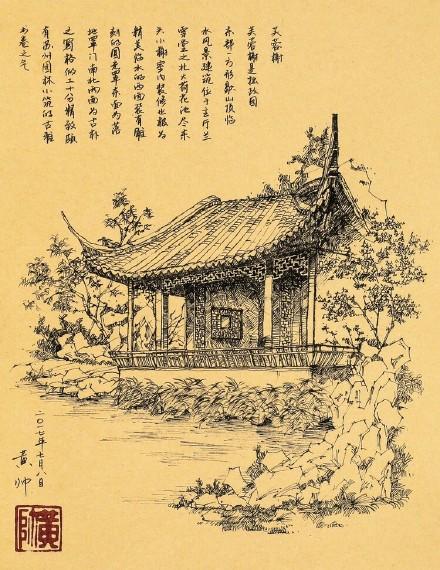 芙蓉榭
芙蓉榭是拙政园
东部一方形歇山顶临
水风景建筑位于主厅兰
雪堂之北大荷花池尽东
头小榭室内装修也极为
精美临水的西面装有雕
刻的圆光罩东面为落
地罩门南北两面为古朴
之窗格做工十分精致颇
有苏州园林小筑的古雅
书卷之气
二〇一七年七月八日
黄帅
黃帥